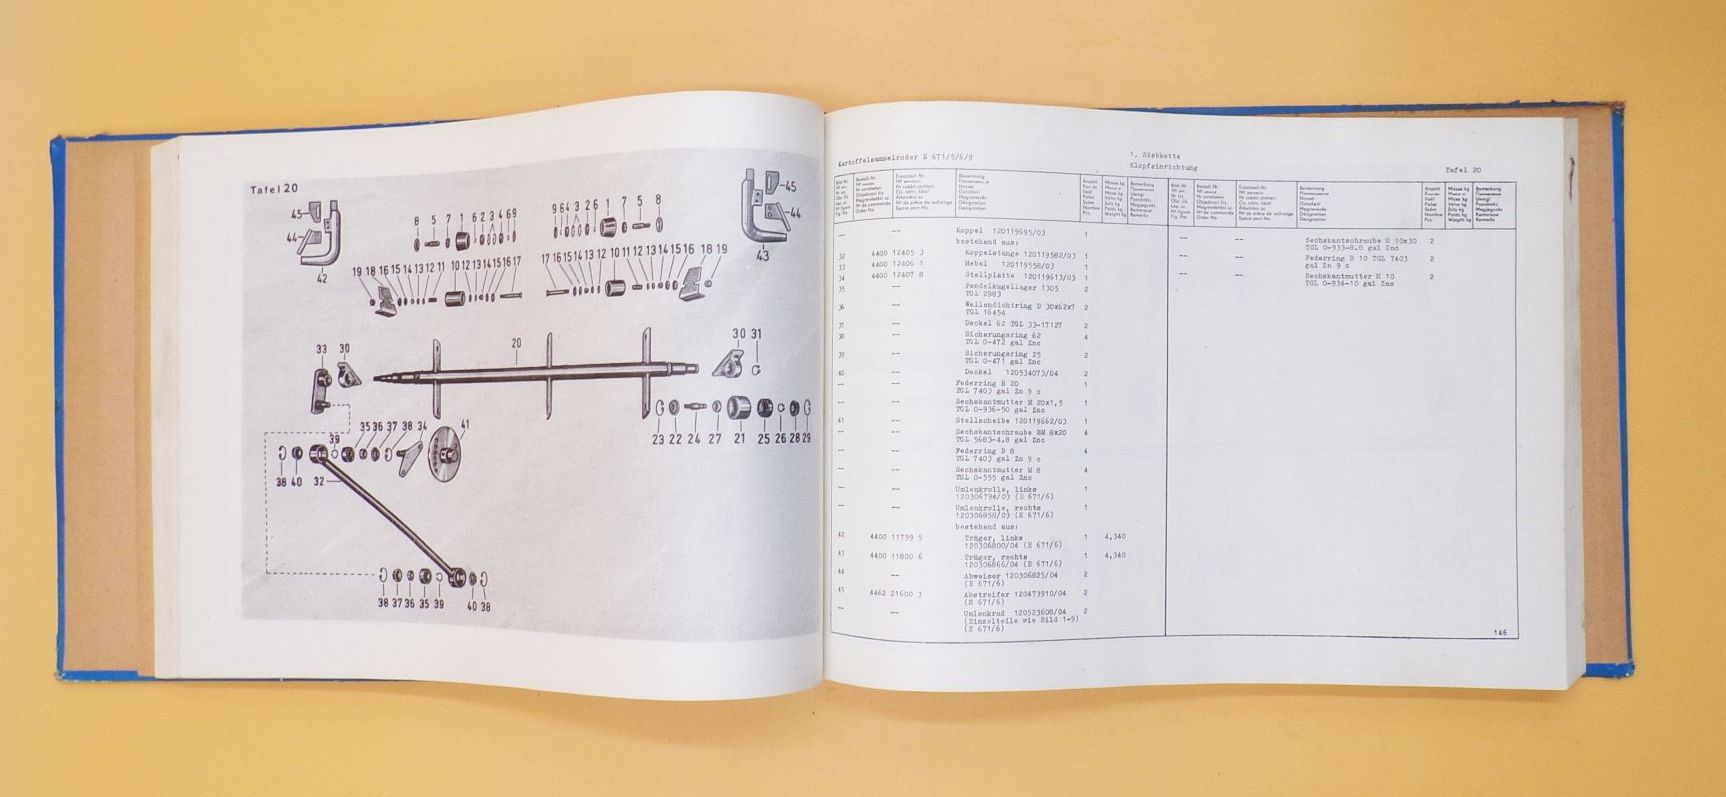 Tafel 20
45
44
42
8 5 7 1 6 2 3 4 6 9
9 6 4 3 2 6 1 7 5 8
45
44
43
19 18 16 15 14 13 12 11 10 12 13 14 15 16 17
17 16 15 14 13 12 10 11 12 13 14 15 16 18 19
33 30
20
30 31
23 22 24 27 21 25 26 28 29
39 35 36 37 38 34 41
38 40 32
38 37 36 35 39 40 38
Kartoffelsammelroder E 671/5/6/9
1. Siebkette
Klopfeinrichtung
Tafel 20
-- -- Koppel 120119695/03 1
bestehend aus:
32 4400 12405 3 Koppelstange 120119582/03 1
33 4400 12406 1 Hebel 120119558/03 1
34 4400 12407 8 Stellplatte 120119613/03 1
35 -- Pendelkugellager 1305 2
TGL 2983
36 -- Wellendichtring D 30x62x7 2
TGL 16454
37 -- Deckel 62 TGL 33-17127 2
38 -- Sicherungsring 62 4
TGL 0-472 gal Znc
39 -- Sicherungsring 25 2
TGL 0-471 gal Znc
40 -- Deckel 120534073/04 2
-- -- Federring B 20 1
TGL 7403 gal Zn 9 c
-- -- Sechskantmutter M 20x1,5 1
TGL 0-936-50 gal Znc
41 -- Stellscheibe 120119662/03 1
-- -- Sechskantschraube BM 8x20 4
TGL 5683-4.8 gal Znc
-- -- Federring B 8 4
TGL 7403 gal Zn 9 c
-- -- Sechskantmutter M 8 4
TGL 0-555 gal Znc
-- -- Umlenkrolle, links 1
120306794/03 (E 671/6)
-- -- Umlenkrolle, rechts 1
120306858/03 (E 671/6)
bestehend aus:
42 4400 11799 5 Träger, links 1 4,340
120306800/04 (E 671/6)
43 4400 11800 6 Träger, rechts 1 4,340
120306866/04 (E 671/6)
44 -- Abweiser 120306825/04 2
(E 671/6)
45 4462 21600 3 Abstreifer 120473910/04 2
(E 671/6)
-- -- Umlenkrad 120523608/04 2
(Einzelteile wie Bild 1-9)
(E 671/6)
-- -- Sechskantschraube M 10x30 2
TGL 0-933-8.8 gal Znc
-- -- Federring B 10 TGL 7403 2
gal Zn 9 c
-- -- Sechskantmutter M 10 2
TGL 0-934-10 gal Znc
146